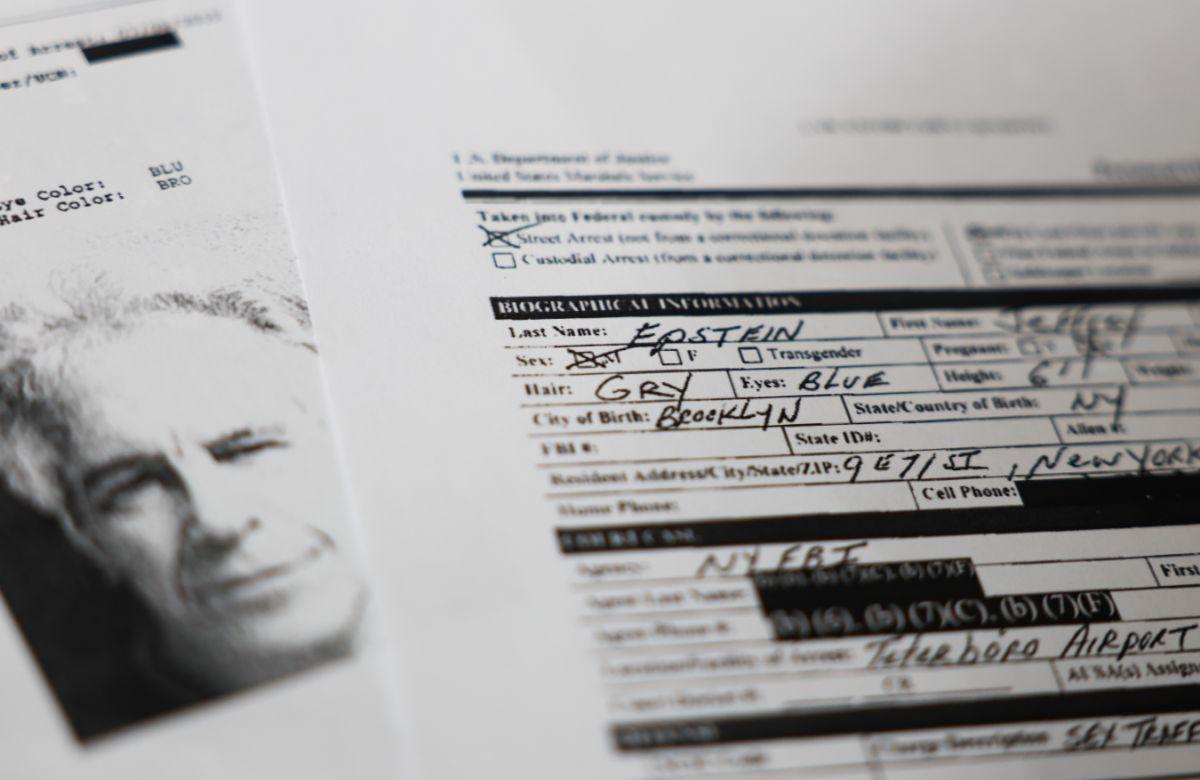 of Arrest:
er/UCN:
ye Color: BLU
Hair Color: BRO
U.S. Department of Justice
United States Marshals Service
Taken into Federal custody by the following:
Street Arrest (not from a correctional detention facility)
Custodial Arrest (from a correctional detention facility)
BIOGRAPHICAL INFORMATION
Last Name: EPSTEIN First Name: Jeffrey
Sex: M F Transgender Pregnant: Y
Hair: GRY Eyes: BLUE Height: 6'1" Weight:
City of Birth: BROOKLYN State/Country of Birth: NY
FBI #: State ID#: Alien #:
Resident Address/City/State/ZIP: 9 E 71 ST, New YORK
Home Phone: Cell Phone:
COURT CASE
Agency: NY FBI
Agent Last Name: (b)(6), (b)(7)(C), (b)(7)(F) First
Agent Phone #: (b)(6), (b)(7)(C), (b)(7)(F)
Location/Facility of Arrest: Teterboro AIRPORT
AUSA(s) Assigne
Charge Description SEX TRAFF